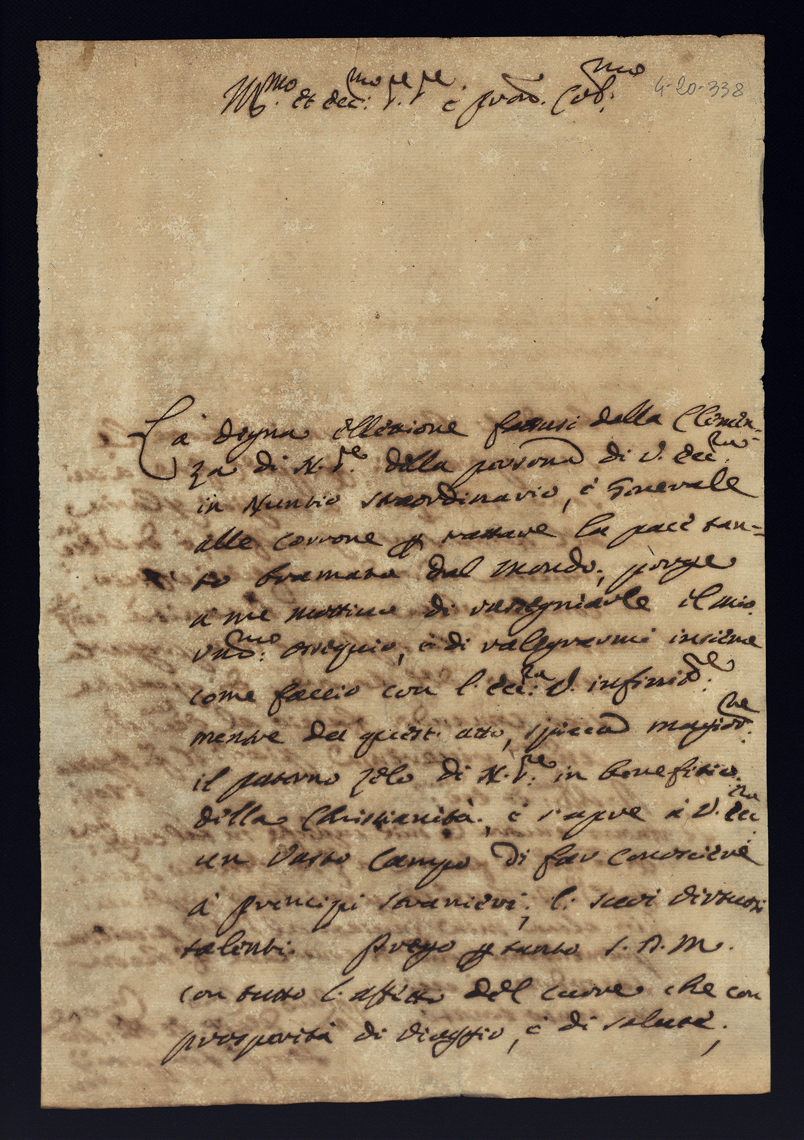 Ill.mo et Ecc.mo S.re S.re e pron. Col.mo
4-20-338
La degna ellettione fattasi dalla Clemen-
za di N. S.re della persona di V. Ecc.za
in Nuntio straordinario, è Generale
alle Corrone p trattare la pace tan-
to bramata dal Mondo, porge
a me mottivo di rassegniarle il mio
, è di ralegrarmi insieme
come faccio con l'Ecc.za V. infinit.te
mentre da quest'atto, spicca maggior.te
il paterno zelo di N. S.re in benefitio
della Christianità, è s'apre à V. Ecc.za
un Vasto Campo di far conosciere
à principi stranieri, li suoi virtuosi
talenti. Prego p tanto S. D. M.
con tutto l'affetto del cuore che con
prosperità di viaggio, è di salute,